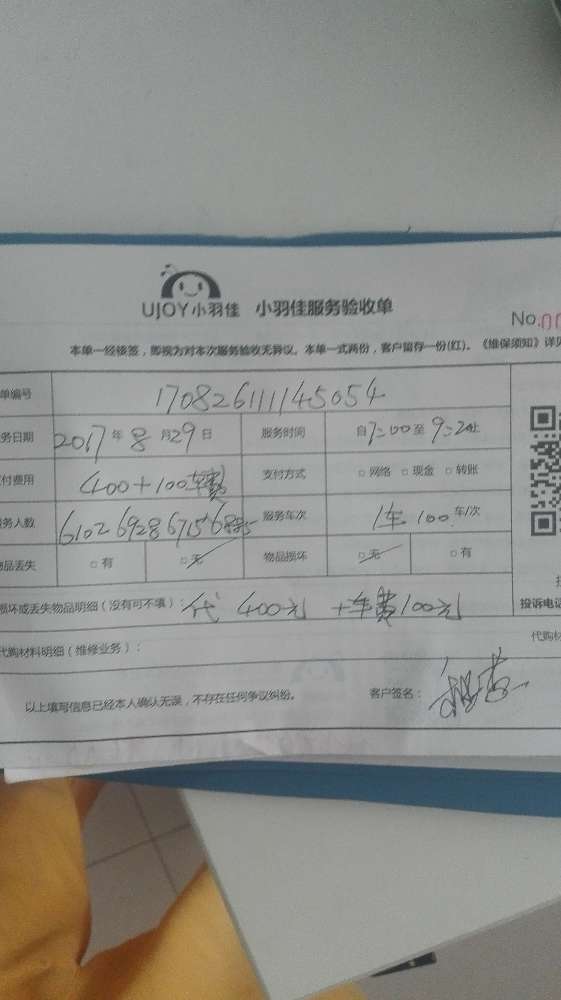 UJOY小羽佳 小羽佳服务验收单
No.00
本单一经接签，即视为对本次服务验收无异议。本单一式两份，客户留存一份(红)。《维保须知》详见
单编号 170826111145054
务日期 2017年8月29日 服务时间 自7:00至9:20止
付费用 400+100车费 支付方式 □网络 □现金 □转账
务人数 6102 6928 6715 服务车次 1车100车/次
物品丢失 □有 □无 物品损坏 □无 □有
损坏或丢失物品明细（没有可不填）：代 400元 +车费100元
投诉电话
代购材料明细（维修业务）：
代购材
以上填写信息已经本人确认无误，不存在任何争议纠纷。 客户签名：